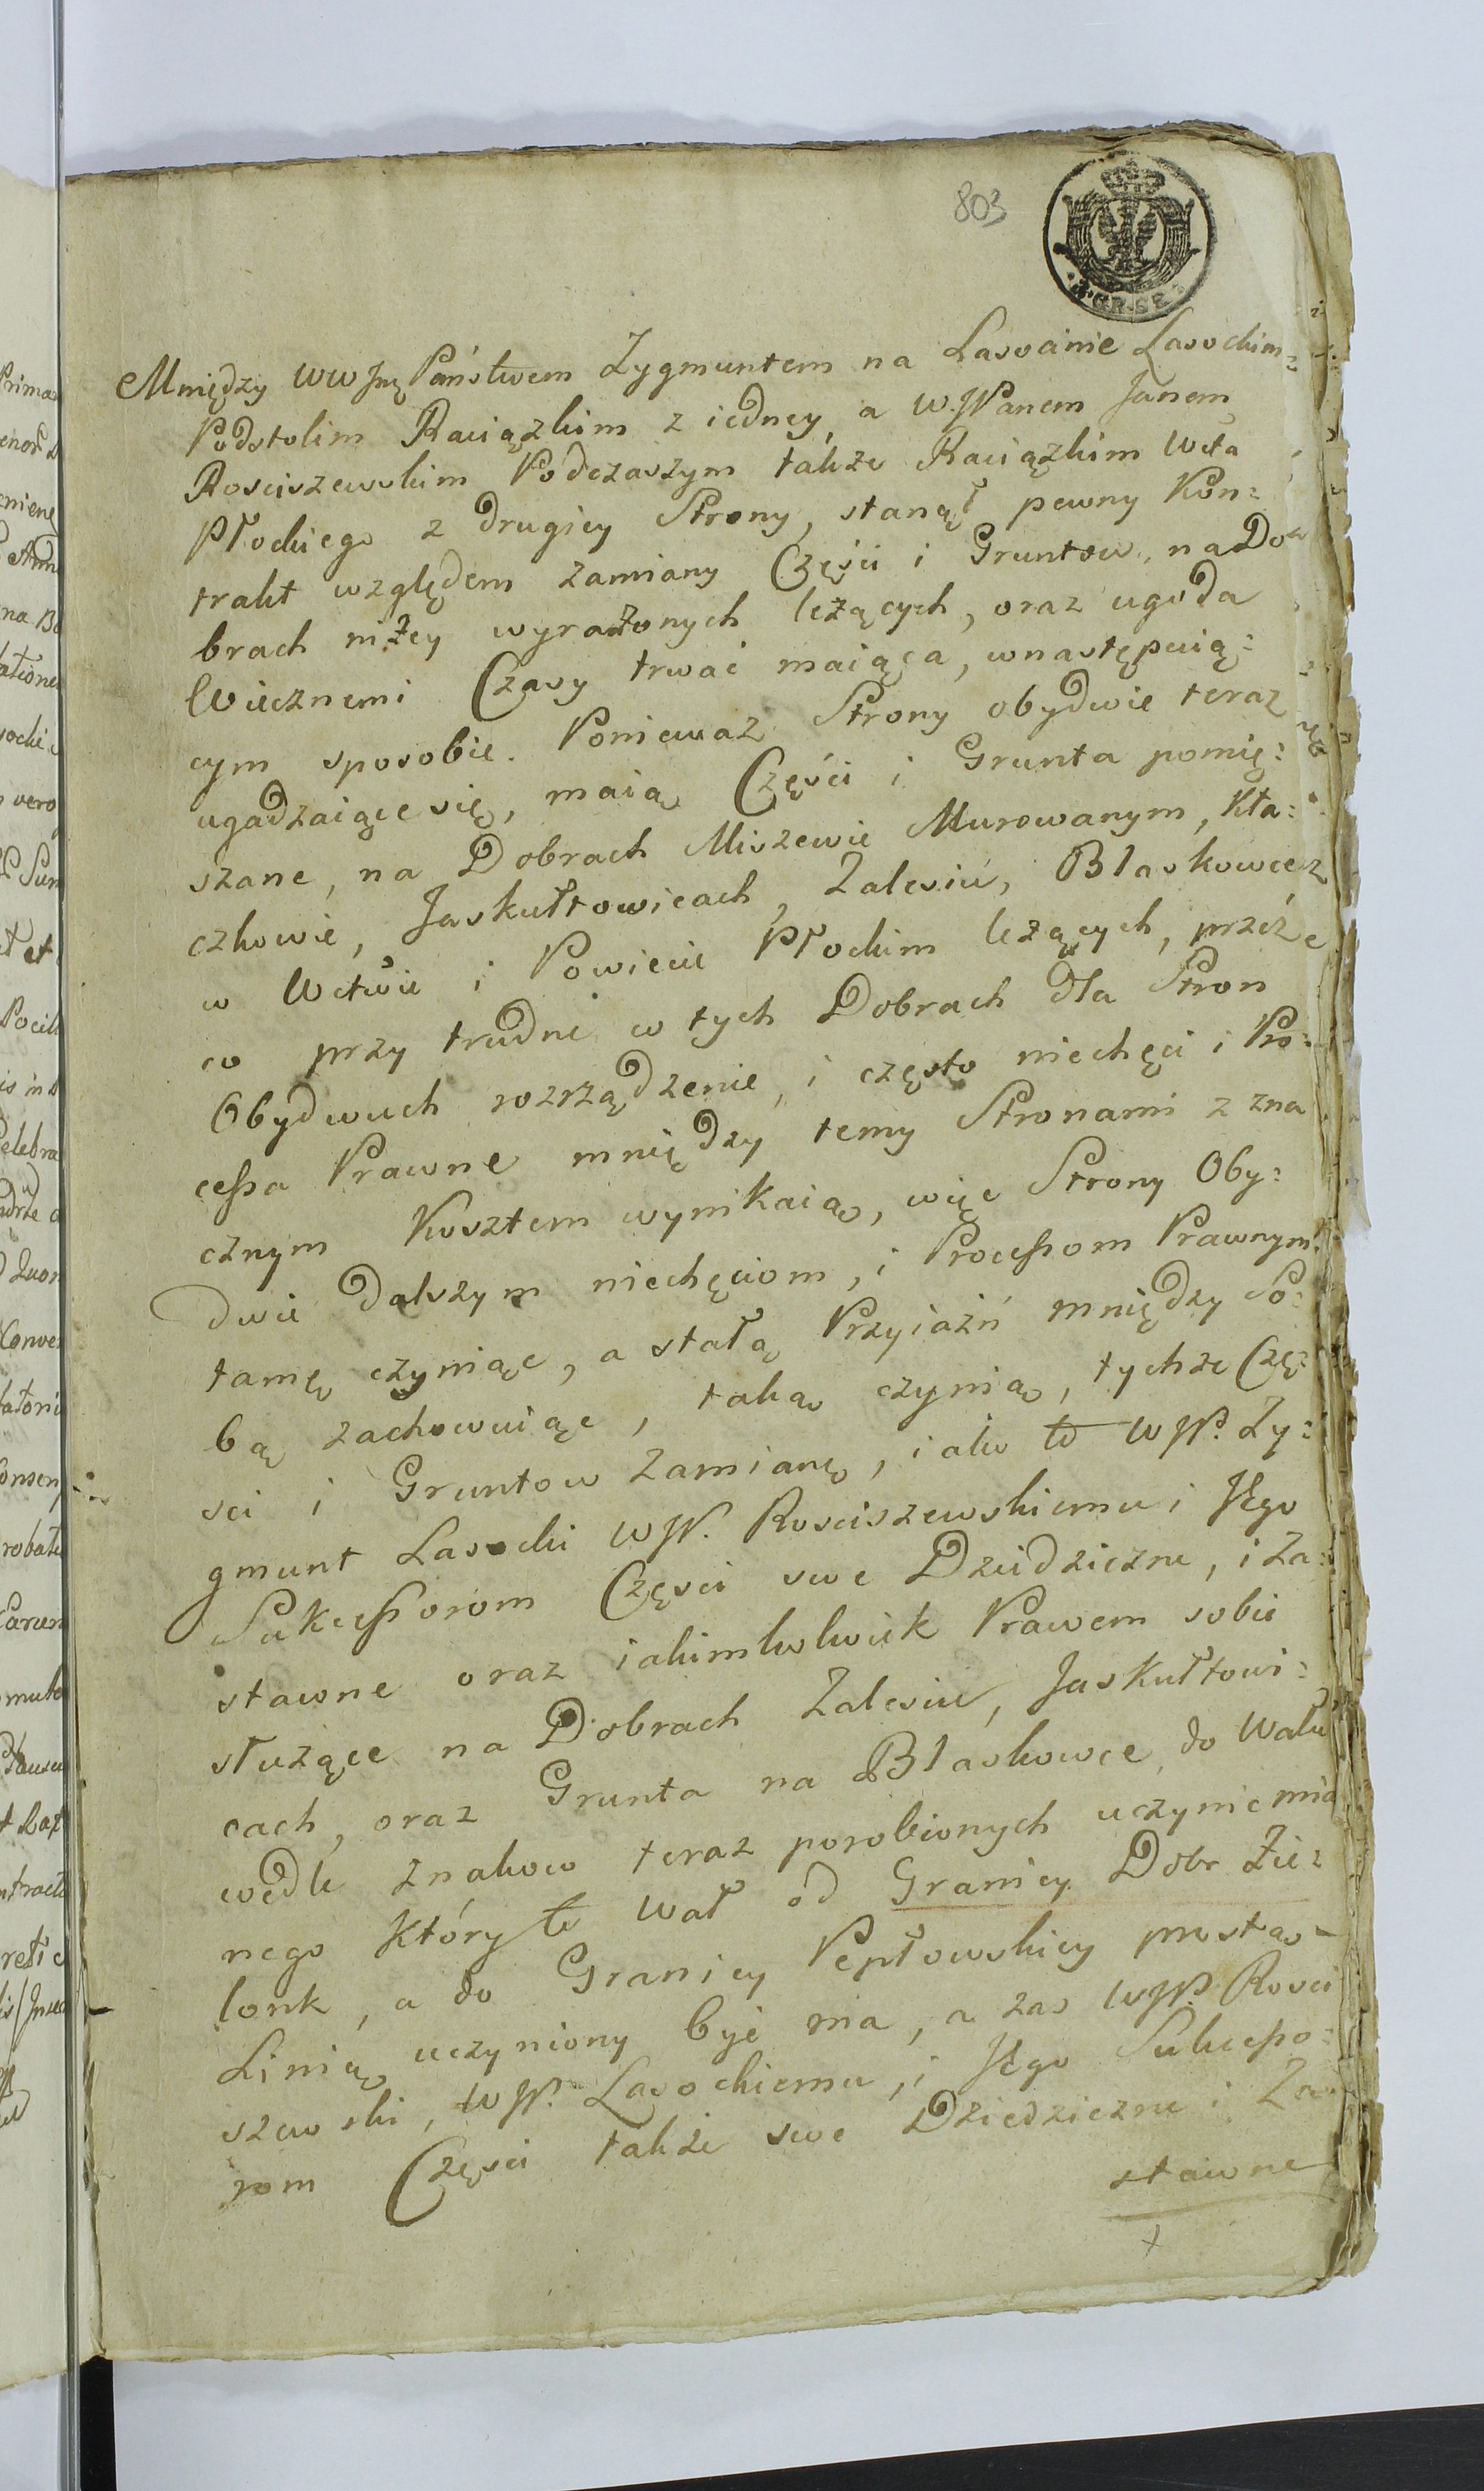 803
GR. SR
Mniędzy WW Jmę Państwem Zygmuntem na Lasocinie Lasockim=
Podstolim Raciązkim z iedney, a W. JPanem Janem
Rosciszewskim Podczaszym także Raciązkim Wctа
Płockiego z drugiey Strony, stanął pewny Kon=
trakt względem zamiany Części i Gruntow, na Do=
brach niżey wyrażonych leżących, oraz ugoda
Wiecznemi Czasy trwać maiąca, wnastępuią=
cym sposobie. Ponieważ Strony obydwie teraz
ugadzaiące się, maią Części i Grunta pomię=
szane, na Dobrach Miszewie Murowanym, Kła=
czkowie, Jaskułtowicach, Zalesiu, Blaskowce
w Wctwie i Powiecie Płockim leżących, przeż
co przy trudne w tych Dobrach dla Stron
Obydwuch rozrządzenie, i często niechęci i Pro=
cessa Prawne mniędzy temy Stronami z zna
cznym Kosztem wynikaią, więc Strony Oby=
dwie dalszym niechęciom, i Processom Prawnym
tamę czyniąc, a stałą Przyiaźń mniędzy So=
bą zachowuiąc, taką czynią, tychże Czę=
sci i Gruntow Zamianę, iako to WJP. Zy=
gmunt Lasocki WJP. Rosciszewskiemu i JEgo
Sukcessorom Częsci swe Dziedziczne, i Za=
stawne oraz iakimkolwiek Prawem sobie
służące na Dobrach Zalesiu, Jaskułtowi=
cach, oraz Grunta na Blaskowce, do Wału
wedle Znakow teraz porobionych uczynic mia
nego który to Wał od Granicy Dobr Zie=
lonk, a do Granicy Pepłowskiey prostą
Linią uczyniony być ma, a zas WJP. Rosci
szewski, WJP. Lasockiemu, i JEgo Sukcesso=
rom Częsci także swe Dziedziczne i Za
stawne